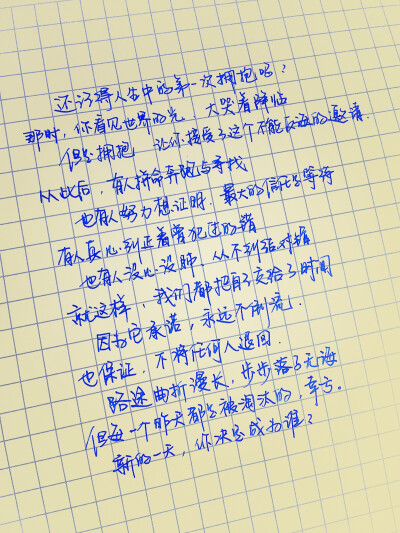 还记得人生中的第一次拥抱吗？
那时，你看见世界的光，大哭着降临
但是拥抱，让你接受了这个不能反悔的邀请.
从此后，有人拼命奔跑与寻找
也有人努力想证明，最大的信任是等待
有人真心纠正着曾犯过的错
也有人没心没肺，从不纠结对错
就这样，我们都把自己交给了时间
因为它承诺，永远不倒流，
也保证，不将任何人退回.
路途曲折漫长，步步落子无悔
但每一个昨天都是被淘汰的，幸亏。
新的一天，你决定成为谁？